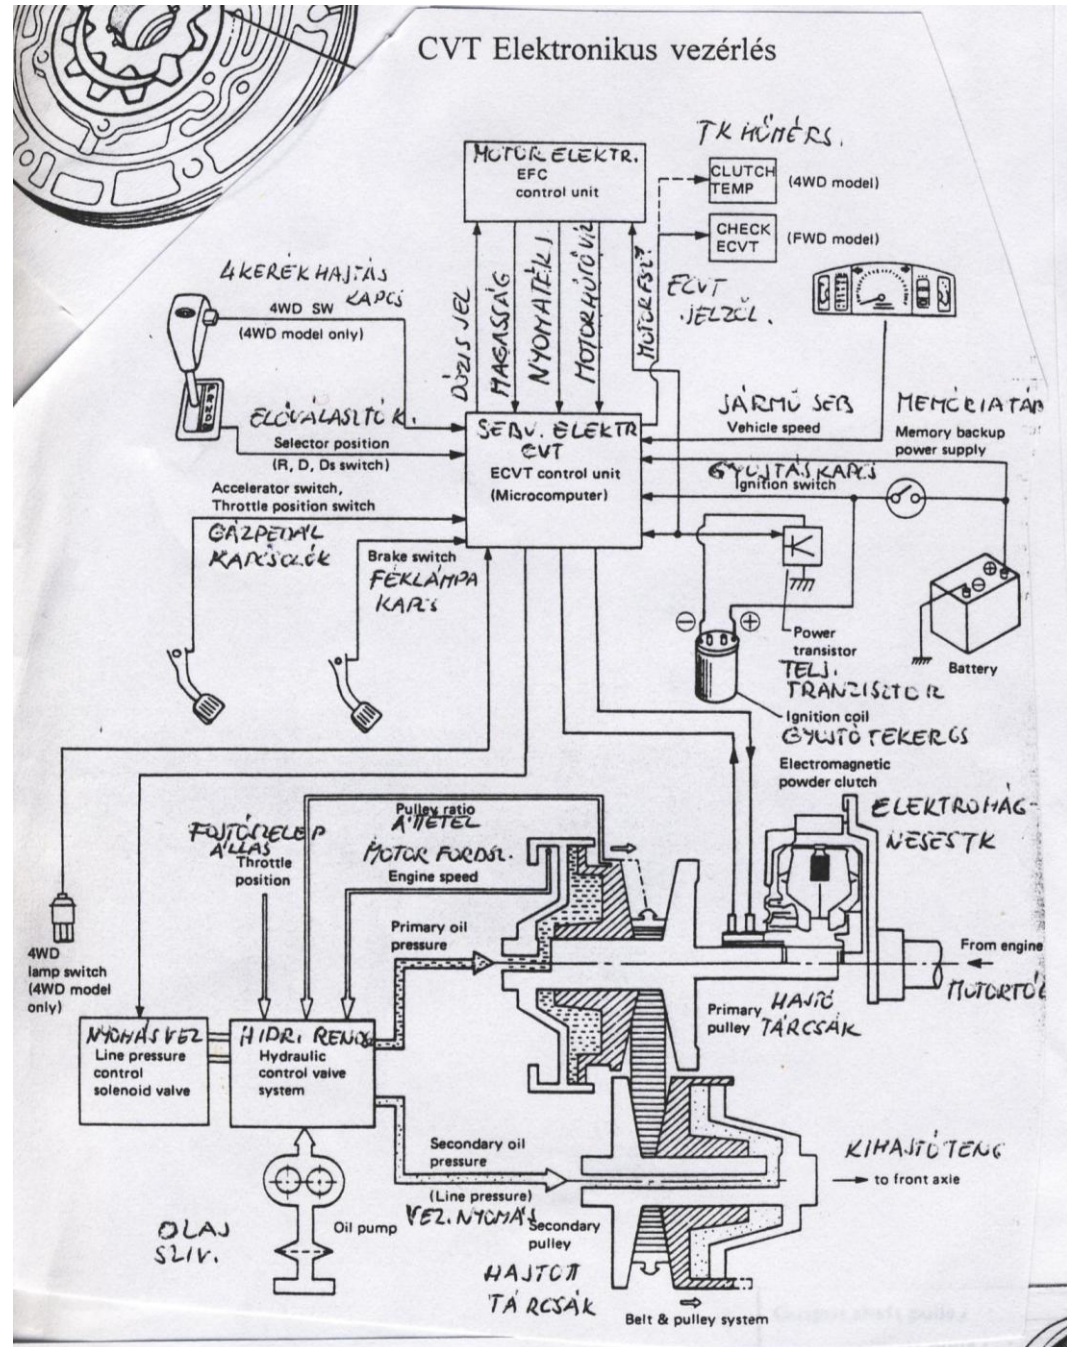 CVT Elektronikus vezérlés
TK HŐMÉRS.
MOTOR ELEKTR.
EFC
control unit
CLUTCH
TEMP
(4WD model)
CHECK
ECVT
(FWD model)
4KERÉKHAJTÁS
KAPCS
4WD SW
(4WD model only)
DÓZIS JEL
MAGASSÁG
NYOMATÉK J
MOTORHŰTŐVÍZ
ECVT
JELZŐL.
ELŐVÁLASZTÓ K.
Selector position
(R, D, Ds switch)
Accelerator switch,
Throttle position switch
GÁZPEDÁL
KAPCSOLÓK
Brake switch
FÉKLÁMPA
KAPCS
ELEKTR
CVT
ECVT control unit
(Microcomputer)
JÁRMŰ SEB
Vehicle speed
MEMÓRIATÁP
Memory backup
power supply
GYUJTÁSKAPCS
Ignition switch
P
R
N
D
Power
transistor
TELJ.
TRANZISZTOR
Battery
Ignition coil
GYUJTÓTEKERCS
Electromagnetic
powder clutch
ELEKTROMÁG-
NESESTK
Pulley ratio
ÁTTÉTEL
FOJTÓSZELEP
ÁLLÁS
Throttle
position
MOTOR FORDSZ.
Engine speed
Primary oil
pressure
4WD
lamp switch
(4WD model
only)
From engine
MOTORTÓL
Primary
pulley
HAJTÓ
TÁRCSÁK
NYOMÁSVEZ
Line pressure
control
solenoid valve
HIDR. RENDSZ
Hydraulic
control valve
system
Secondary oil
pressure
(Line pressure)
VEZ. NYOMÁS
Secondary
pulley
HAJTOTT
TÁRCSÁK
KIHAJTÓTENG
to front axle
OLAJ
SZIV.
Oil pump
Belt & pulley system